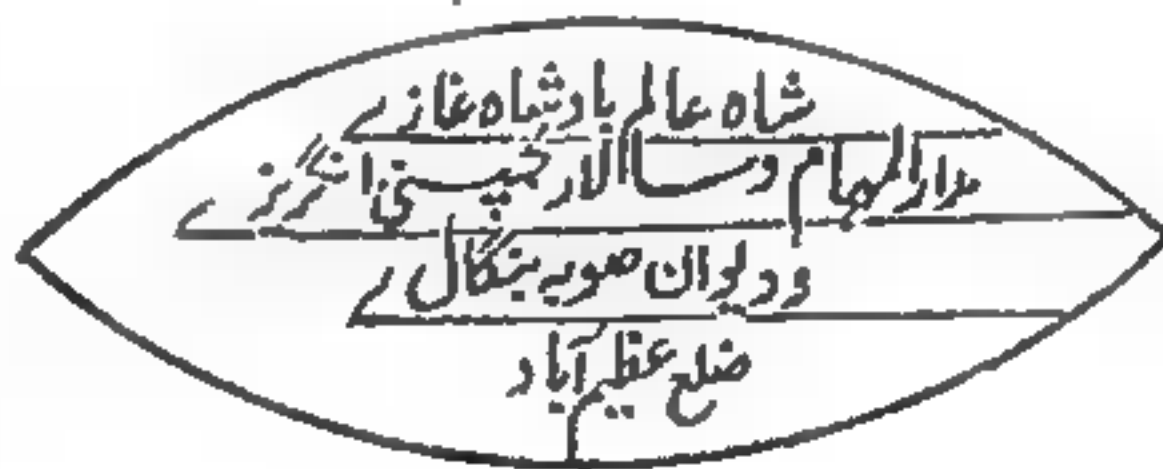 شاه عالم بادشاه غازے
مدارالمهام وسالار کمپنی انگریزے
و دیوان صوبه بنگالے
ضلع عظیم آباد